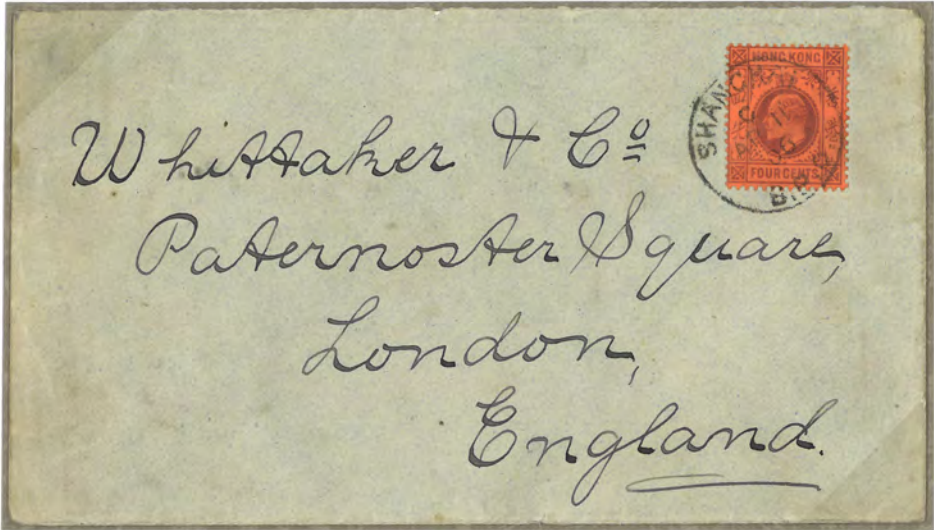 HONG KONG
FOUR CENTS
SHANGHAI
B.P.O.
Whittaker & Cº
Paternoster Square,
London,
England.